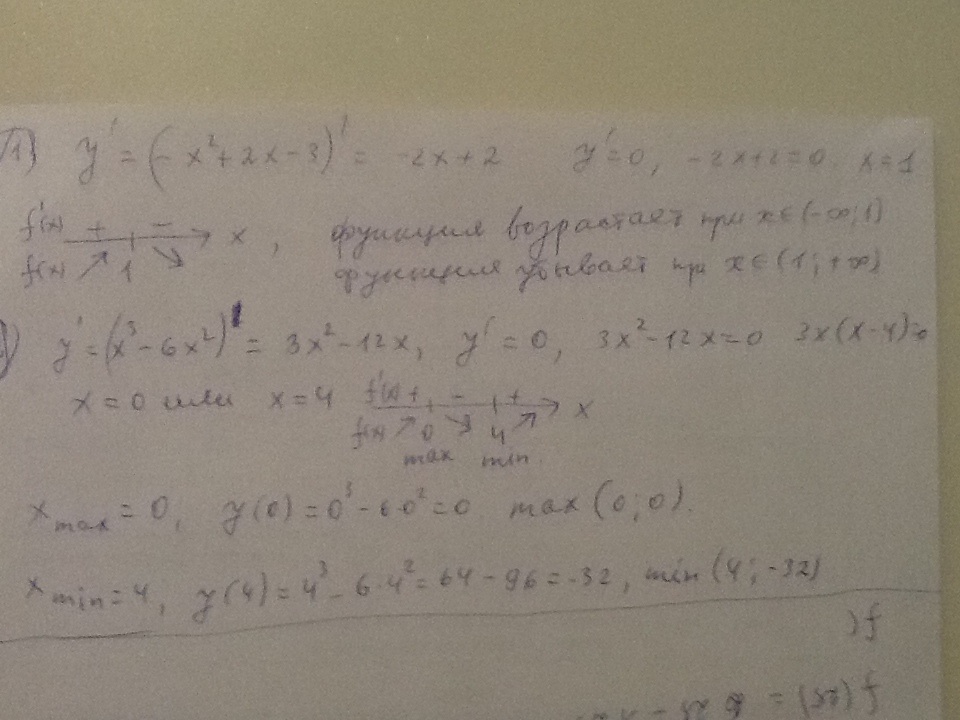 1) y' = (- x² + 2x - 3)' = -2x + 2 y' = 0, -2x+2=0. x=1
f'(x) + - x, функция возрастает при x∈(-∞;1)
f(x) ↗ 1 ↘ функция убывает при x∈(1;+∞)
) y' = (x³ - 6x²)' = 3x² - 12x, y' = 0, 3x² - 12x = 0 3x(x-4)=0
x = 0 или x = 4 f'(x) + - + x
f(x) ↗ 0 ↘ 4 ↗
max min
x max = 0, y(0) = 0³ - 6·0² = 0 max (0;0).
x min = 4, y(4) = 4³ - 6·4² = 64 - 96 = -32, min (4; -32)